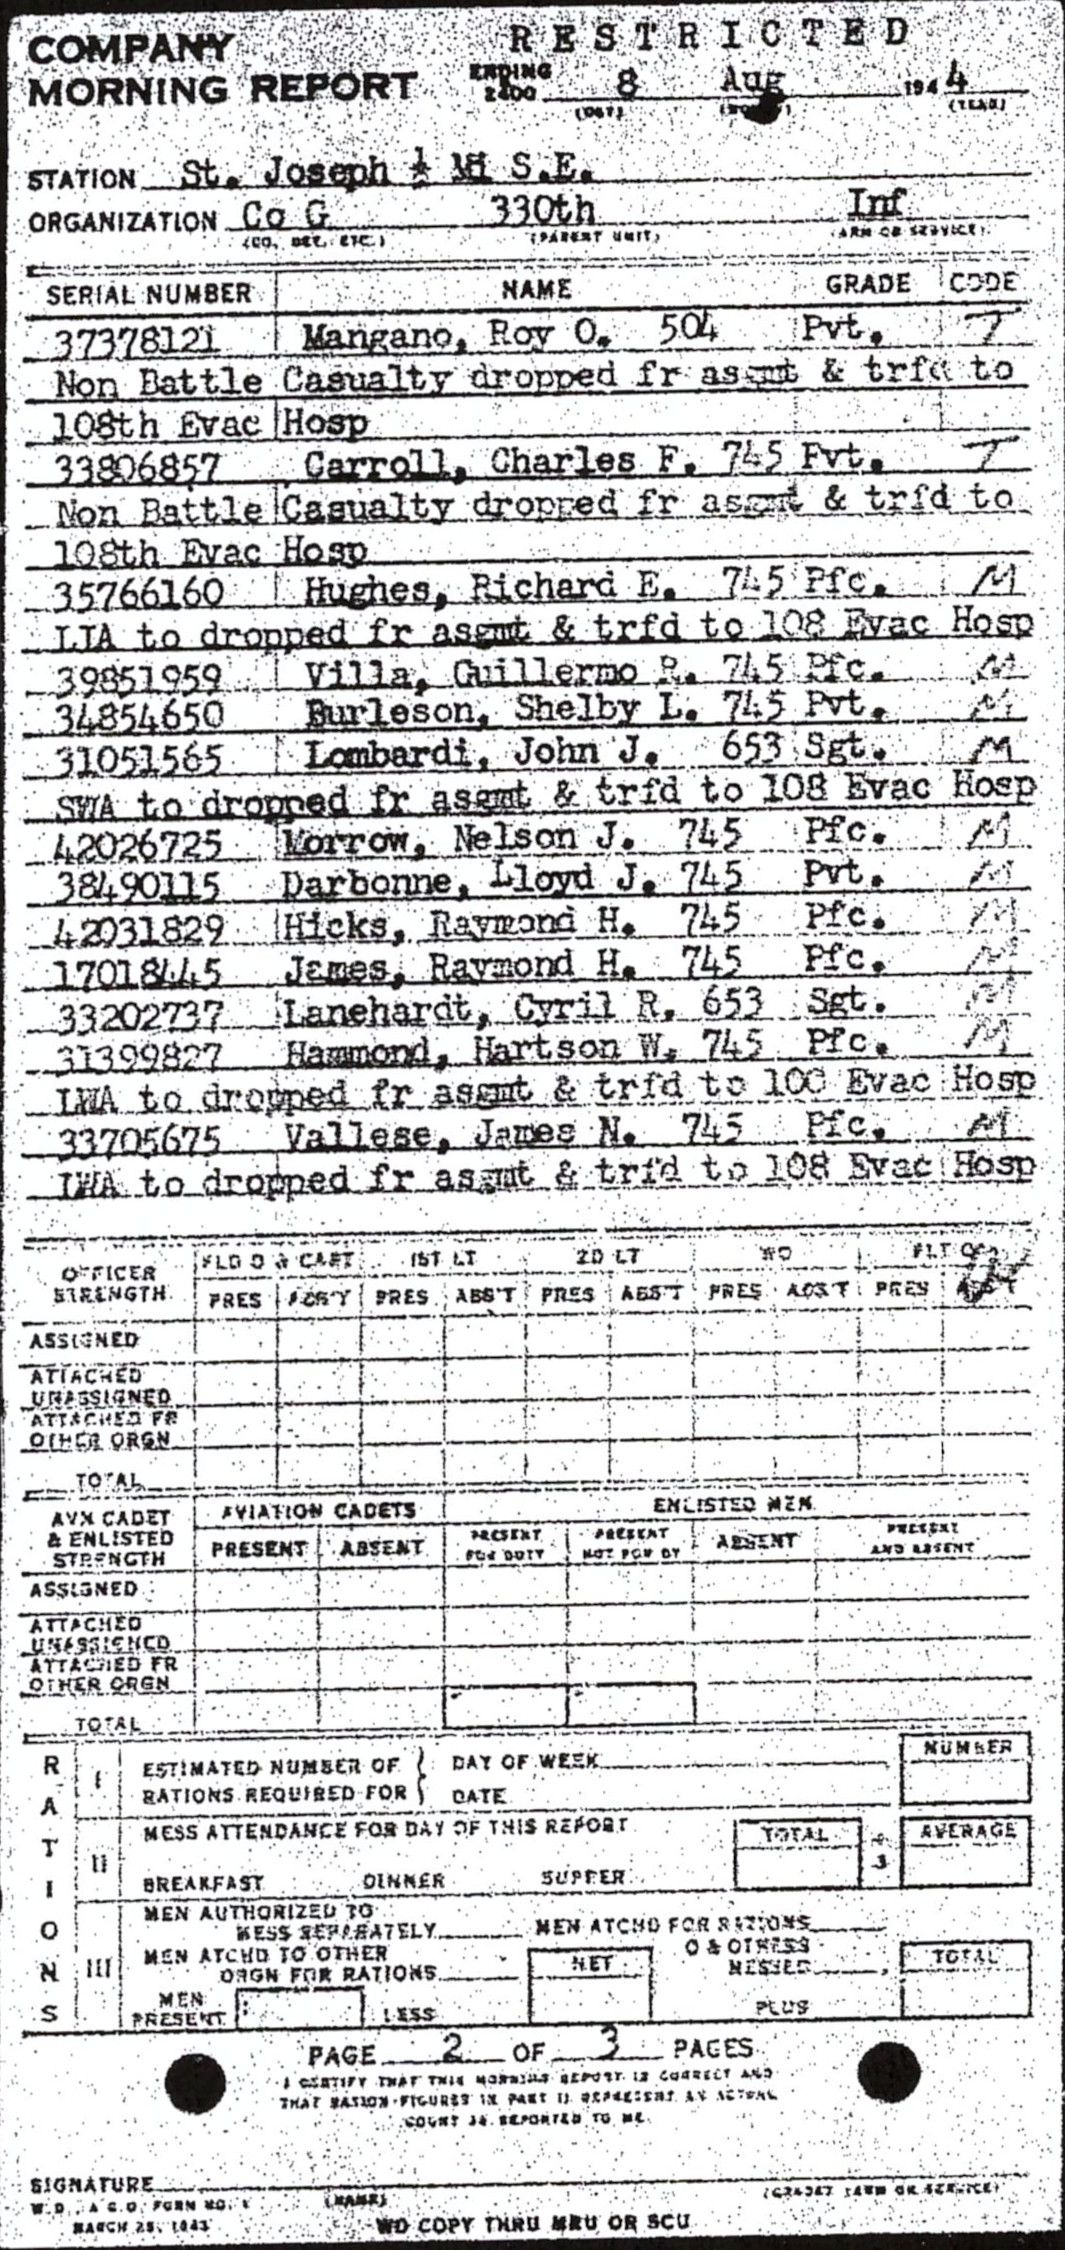 COMPANY
MORNING REPORT
RESTRICTED
ENDING 2400 8 Aug 1944
(DAY) (YEAR)
STATION St. Joseph ½ Mi S.E.
ORGANIZATION Co G 330th Inf
(CO. DET. ETC.) (PARENT UNIT) (ARM OR SERVICE)
SERIAL NUMBER NAME GRADE CODE
37378121 Mangano, Roy O. 504 Pvt. T
Non Battle Casualty dropped fr asgmt & trfd to
108th Evac Hosp
33806857 Carroll, Charles F. 745 Pvt. T
Non Battle Casualty dropped fr asgmt & trfd to
108th Evac Hosp
35766160 Hughes, Richard E. 745 Pfc. M
LIA to dropped fr asgmt & trfd to 108 Evac Hosp
39851959 Villa, Guillermo R. 745 Pfc. M
34854650 Burleson, Shelby L. 745 Pvt. M
31051565 Lombardi, John J. 653 Sgt. M
SWA to dropped fr asgmt & trfd to 108 Evac Hosp
42026725 Morrow, Nelson J. 745 Pfc. M
38490115 Darbonne, Lloyd J. 745 Pvt. M
42031829 Hicks, Raymond H. 745 Pfc. M
17018445 James, Raymond H. 745 Pfc. M
33202737 Lanehardt, Cyril R. 653 Sgt. M
31399827 Hammond, Hartson W. 745 Pfc. M
LWA to dropped fr asgmt & trfd to Evac Hosp
33705675 Vallese, James N. 745 Pfc. M
LWA to dropped fr asgmt & trfd to 108 Evac Hosp
OFFICER STRENGTH FLD O & CAPT 1ST LT 2D LT WO FLT O
PRES ABS'T PRES ABS'T PRES ABS'T PRES ABS'T PRES
ASSIGNED
ATTACHED UNASSIGNED
ATTACHED FR OTHER ORGN
TOTAL
AVN CADET & ENLISTED STRENGTH AVIATION CADETS ENLISTED MEN
PRESENT ABSENT PRESENT FOR DUTY PRESENT NOT FOR DY ABSENT PRESENT AND ABSENT
ASSIGNED
ATTACHED UNASSIGNED
ATTACHED FR OTHER ORGN
TOTAL
RATIONS
I ESTIMATED NUMBER OF RATIONS REQUIRED FOR DAY OF WEEK DATE NUMBER
II MESS ATTENDANCE FOR DAY OF THIS REPORT TOTAL ÷ 3 AVERAGE
BREAKFAST DINNER SUPPER
III MEN AUTHORIZED TO MESS SEPARATELY MEN ATCHD FOR RATIONS
MEN ATCHD TO OTHER ORGN FOR RATIONS NET O & OTHERS MESSED TOTAL
MEN PRESENT LESS PLUS
PAGE 2 OF 3 PAGES
I CERTIFY THAT THIS MORNING REPORT IS CORRECT AND
THAT RATION FIGURES IN PART II REPRESENT AN ACTUAL
COUNT AS REPORTED TO ME.
SIGNATURE
(NAME) (GRADE) (ARM OR SERVICE)
W.D., A.G.O. FORM NO. 1
MARCH 25, 1943
WD COPY THRU MRU OR SCU